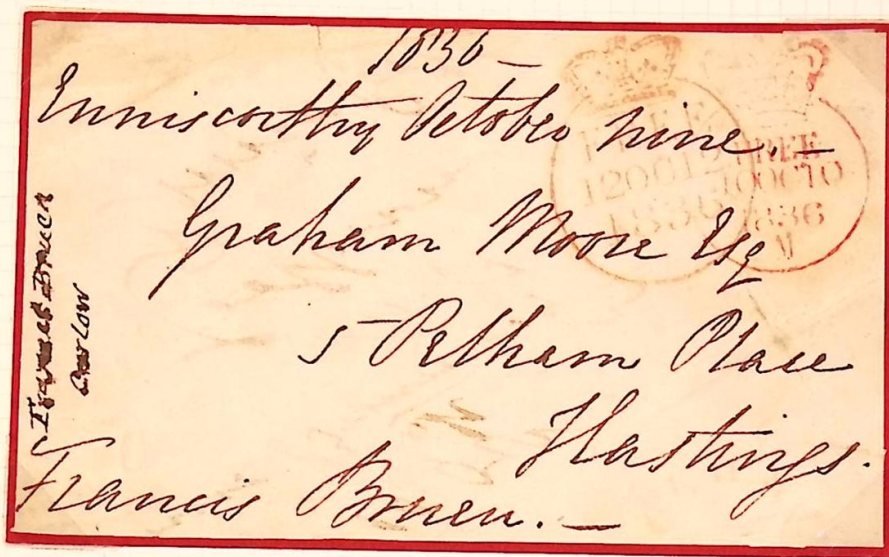 1836 —
Enniscorthy October nine. —
Graham Moore Esq
5 Pelham Place
Hastings.
Francis Bruen. —
Francis Bruen
Carlow
FREE
12 OC 12
1836
FREE
10 OC 10
1836